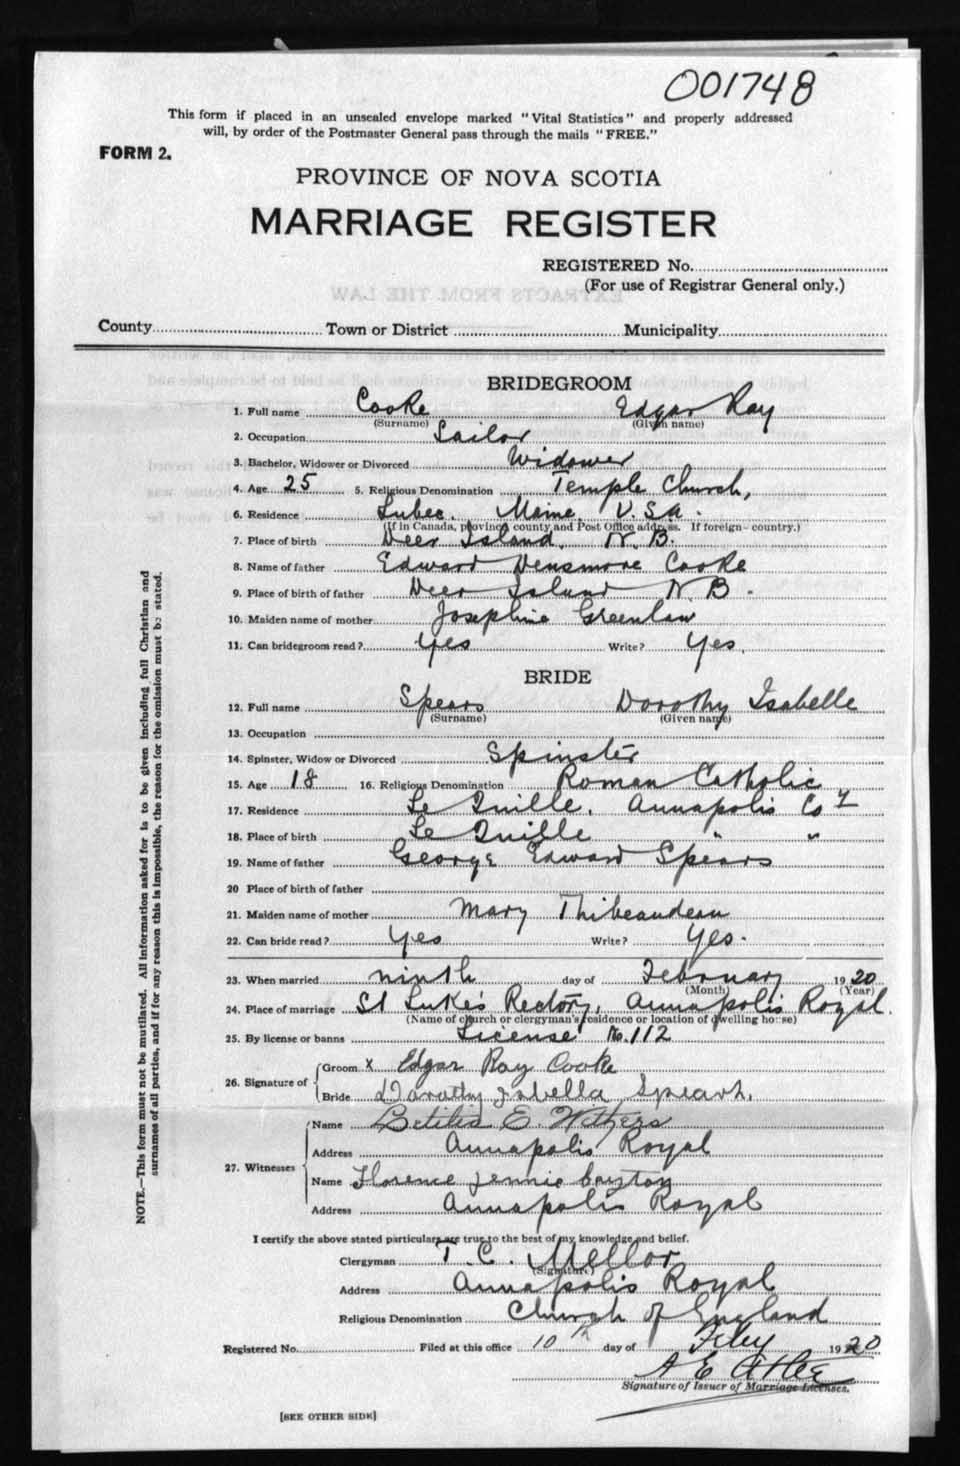 001748
This form if placed in an unsealed envelope marked "Vital Statistics" and properly addressed
will, by order of the Postmaster General pass through the mails "FREE."
FORM 2.
PROVINCE OF NOVA SCOTIA
MARRIAGE REGISTER
REGISTERED No.
(For use of Registrar General only.)
EXTRACTS FROM THE LAW
County Town or District Municipality
BRIDEGROOM
1. Full name Cooke Edgar Ray
(Surname) (Given name)
2. Occupation Sailor
3. Bachelor, Widower or Divorced Widower
4. Age 25 5. Religious Denomination Temple Church,
6. Residence Lubec. Maine U.S.A.
(If in Canada, province county and Post Office address. If foreign country.)
7. Place of birth Deer Island, N.B.
8. Name of father Edward Densmore Cooke
9. Place of birth of father Deer Island N.B.
10. Maiden name of mother Josephine Greenlaw
11. Can bridegroom read? Yes Write? Yes.
BRIDE
12. Full name Spears Dorothy Isabelle
(Surname) (Given name)
13. Occupation
14. Spinster, Widow or Divorced Spinster
15. Age 18 16. Religious Denomination Roman Catholic
17. Residence Le Quille, Annapolis Coy
18. Place of birth Le Quille " "
19. Name of father George Edward Spears
20 Place of birth of father
21. Maiden name of mother Mary Thibeaudeau
22. Can bride read? Yes Write? Yes.
23. When married ninth day of February 1920
(Month) (Year)
24. Place of marriage St Luke's Rectory, Annapolis Royal.
(Name of church or clergyman's residence or location of dwelling house)
25. By license or banns License No. 112
26. Signature of Groom X Edgar Ray Cooke
Bride Dorothy Isabella Spears.
27. Witnesses
Name E. Withers
Address Annapolis Royal
Name Florence Jennie
Address Annapolis Royal
I certify the above stated particulars are true to the best of my knowledge and belief.
Clergyman T. C. Mellor
(Signature)
Address Annapolis Royal
Religious Denomination Church of England
Registered No. Filed at this office 10th day of Feby 1920
A E Atlee
Signature of Issuer of Marriage Licenses.
[SEE OTHER SIDE]
NOTE.—This form must not be mutilated. All information asked for is to be given including full Christian and
surnames of all parties, and if for any reason this is impossible, the reason for the omission must be stated.